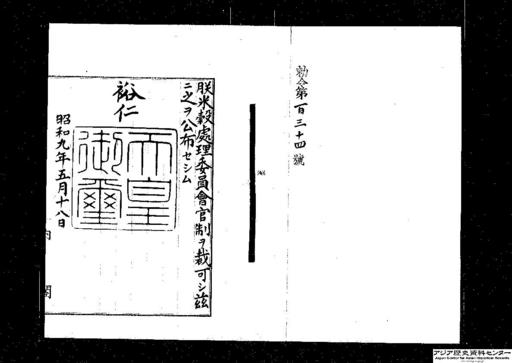 勅令第百三十四號
朕米穀處理委員會官制ヲ裁可シ茲
ニ之ヲ公布セシム
裕仁
天皇御璽
昭和九年五月十八日
内閣
アジア歴史資料センター
Japan Center for Asian Historical Records